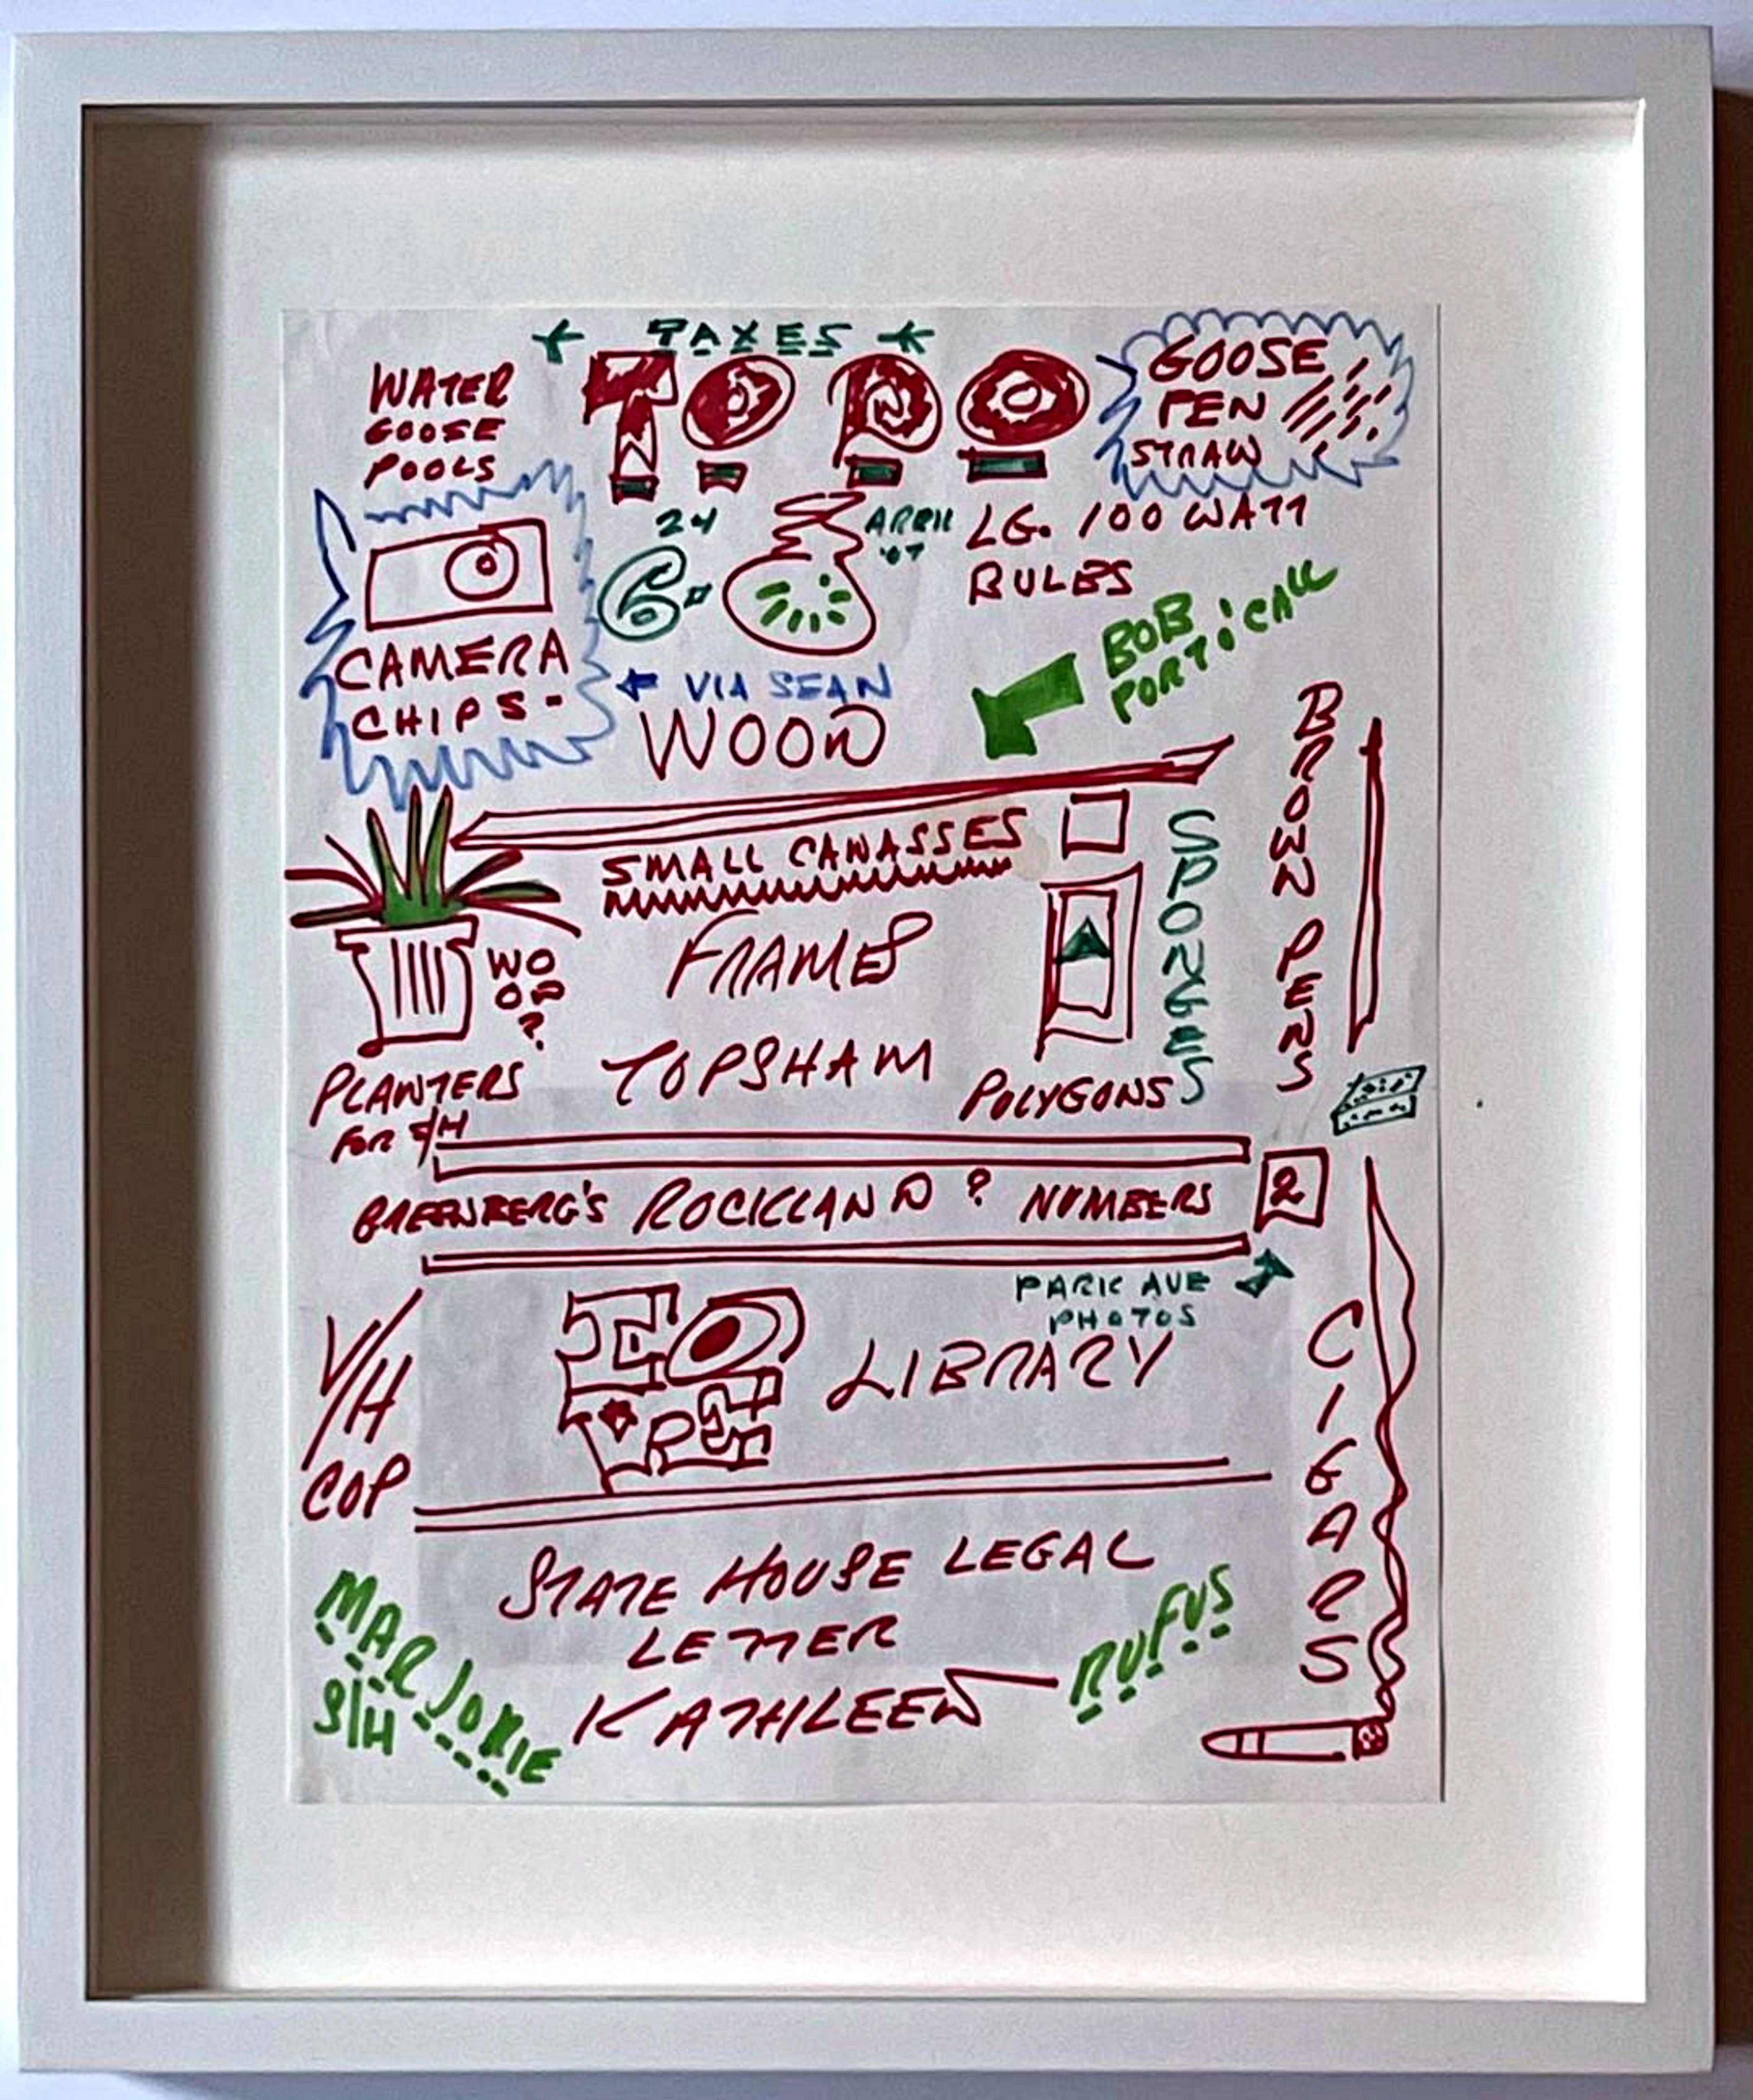 TAXES
TOPO
WATER
GOOSE
POOLS
GOOSE
PEN
STRAW
24
6"
APRIL
'07
LG. 100 WATT
BULBS
CAMERA
CHIPS-
VIA SEAN
WOOD
BOB
PORT: CALL
BROWN PENS
SMALL CANVASSES
SPONGES
FRAMES
WO
OD
?
PLANTERS
FOR S/H
TOPSHAM
POLYGONS
GREENBERG'S ROCKLAND ? NUMBERS 2
PARK AVE
PHOTOS
V/H
COP
LIBRARY
CIGARS
STATE HOUSE LEGAL
LETTER
KATHLEEN
RUFUS
MARJORIE
S/H